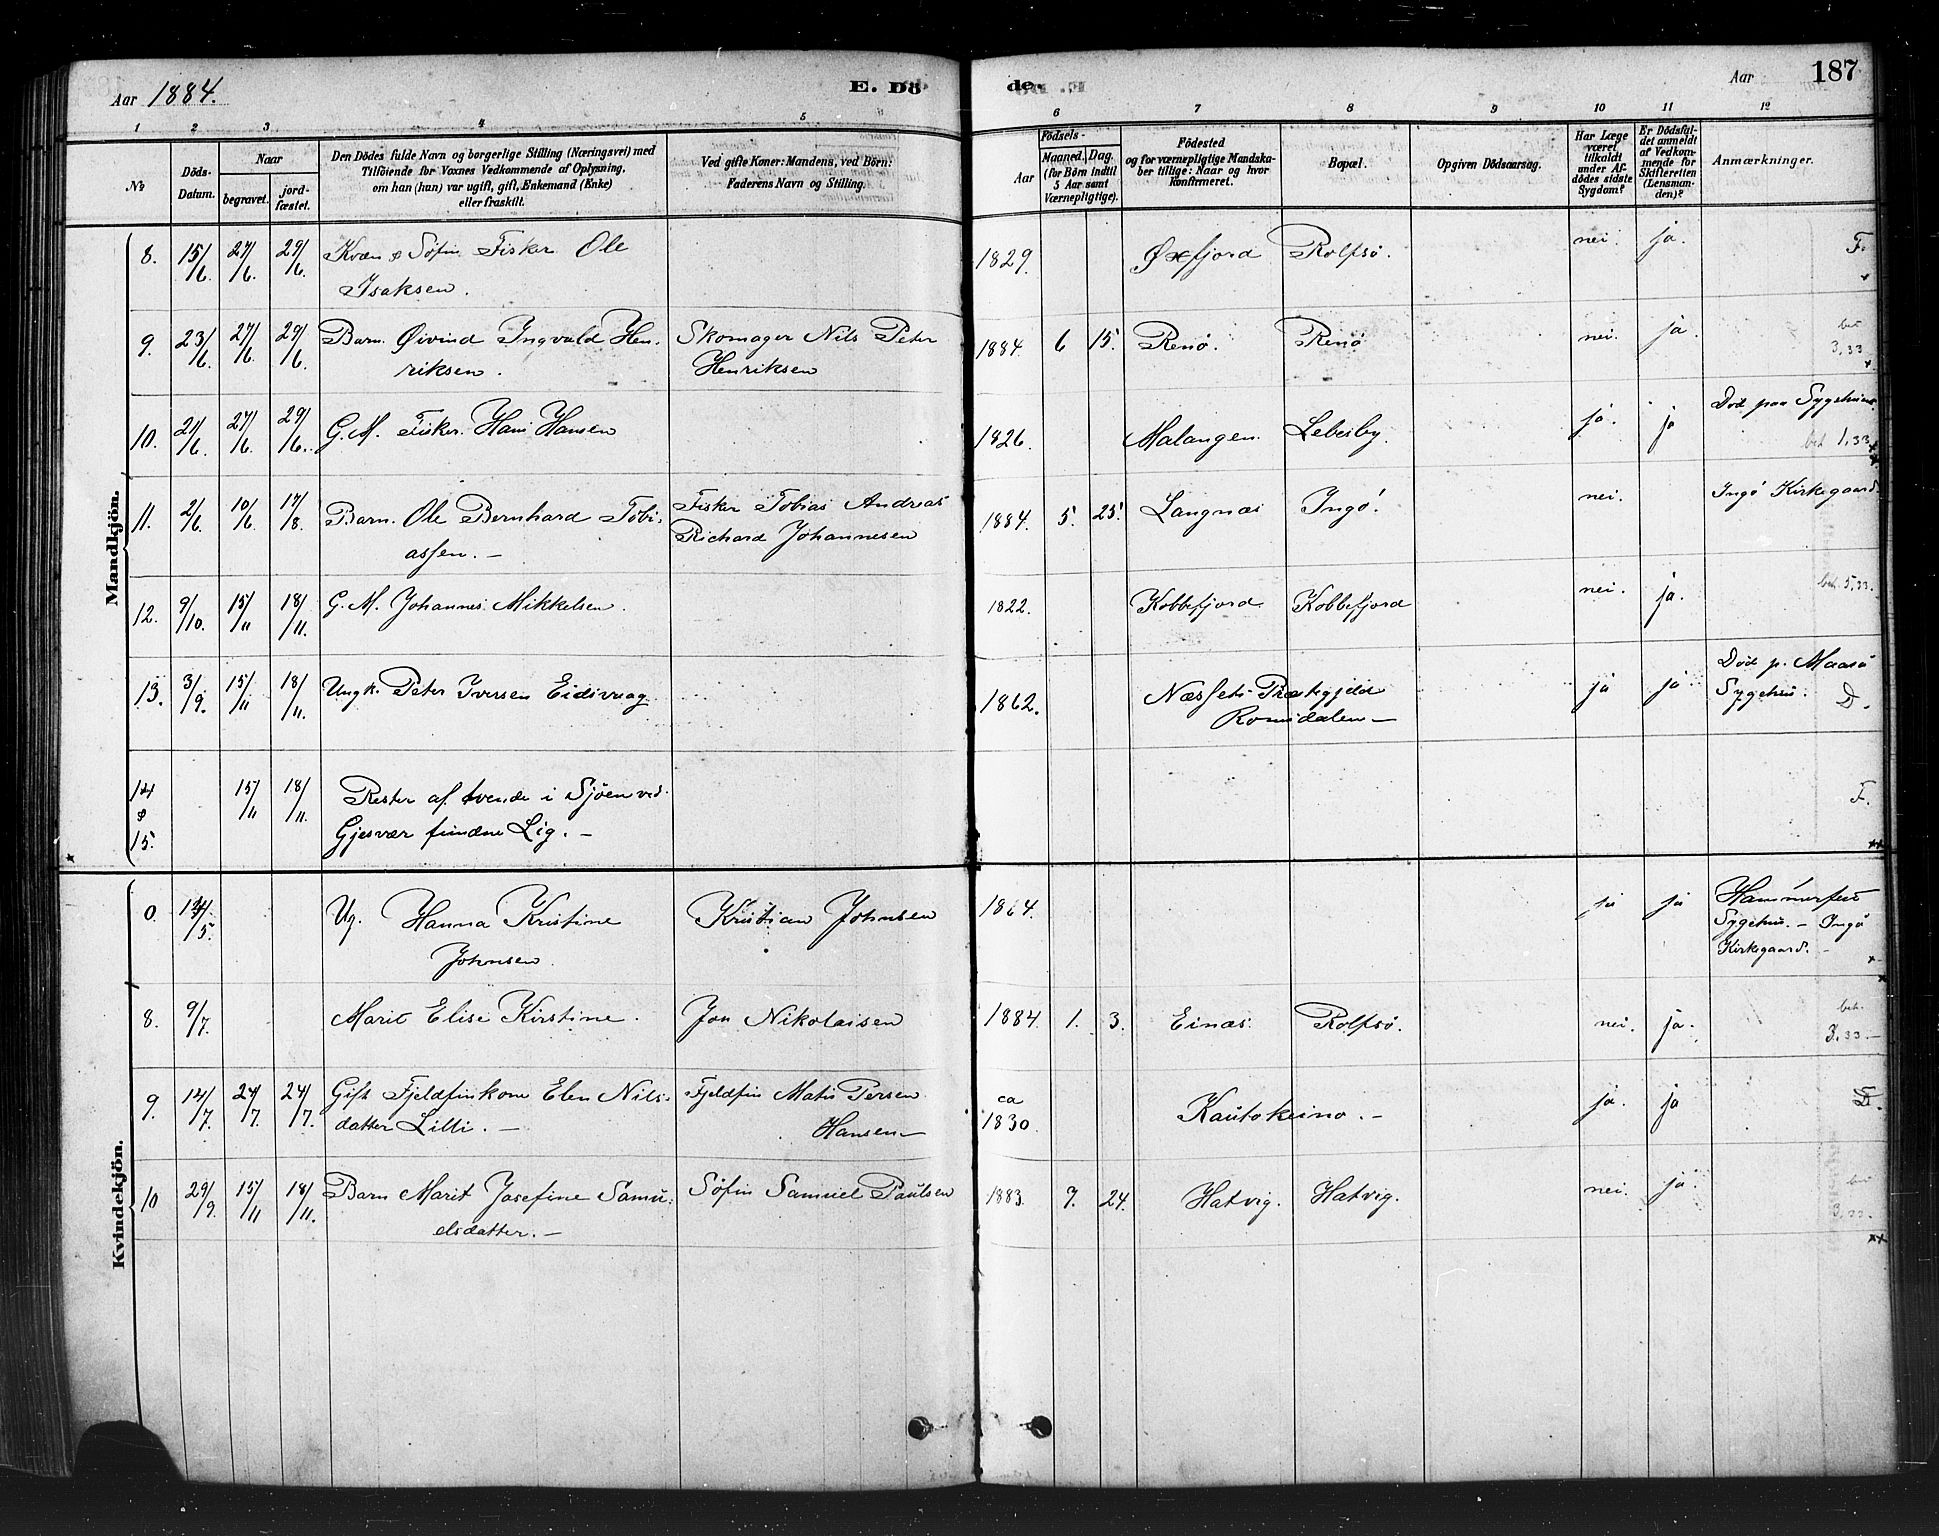 Aar 1884.
E. Dö
de.
Aar
187
1 2 3 4 5 6 7 8 9 10 11 12
No
Döds-
Datum.
Naar
begravet.
jord-
fæstet.
Den Dödes fulde Navn og borgerlige Stilling (Næringsvei) med
Tilföiende for Voxnes Vedkommende af Oplysning,
om han (hun) var ugift, gift, Enkemand (Enke)
eller fraskilt.
Ved gifte Koner: Mandens, ved Börn:
Faderens Navn og Stilling.
Födsels-
Aar
Maaned. Dag.
(for Börn indtil
5 Aar samt
Værnepligtige).
Födested
og for værnepligtige Mandska-
ber tillige: Naar og hvor
konfirmeret.
Bopæl.
Opgiven Dödsaarsag.
Har Læge
været
tilkaldt
under Af-
dödes sidste
Sygdom?
Er Dödsfal-
det anmeldt
af Vedkom-
mende for
Skifteretten
(Lensman-
den)?
Anmærkninger.
Mandkjön.
8. 15/6 27/6 29/6 Kvæn & Søfin Fisker Ole 1829. Øxfjord Rolfsö. nei. ja. F.
Isaksen.
9. 23/6 27/6 29/6 Barn. Øivind Ingvald Hen- Skomager Nils Peter 1884. 6 15. Renö. Renö nei. ja bet
riksen. Henriksen 3,33
10. 21/6 27/6 29/6. G. M. Fisker. Hans Hansen 1826 Malangen. Lebesby. ja. ja Död paa Sygehuset.
bet 1,33
11. 2/6 10/6 17/8. Barn. Ole Bernhard Tobi- Fisker Tobias Andreas 1884. 5. 25. Langnæs Ingö. nei. Ingö Kirkegaard.
assen. – Richard Johannesen
12. 9/10. 15/11 18/11. G. M. Johannes Mikkelsen. 1822. Kobbefjord Kobbefjord nei. ja. bet. 5,33.
13. 3/9. 15/11 18/11. Ungk. Peter Iversen Eidsvaag 1862. Næssets Præstegjeld ja ja Död p. Maasö
Romsdalen – Sygehus. D.
14 & 15. 15/11 18/11. Rester af tvende i Sjöen ved F.
Gjesvær fundne Lig. –
Kvindekjön.
0. /5. Ug. Hanna Kristine Kristian Johnsen 1864. ja ja Hammerfest
Johnsen Sygehus. – Ingö
Kirkegaard. –
8. 9/7. Marit Elise Kirstine. Jon Nikolaisen 1884. 1. 3. Einæs. Rolfsö. nei. ja. bet.
3,33. –
9. 12/7 24/7 24/7. Gift Fjeldfinkone Elen Nils- Fjeldfin Matis Persen ca Kautokeino. – ja. ja D.
datter Lilli. – Hansen – 1830.
10 29/9. 15/11 18/11. Barn Marit Josefine Samu- Søfin Samuel Paulsen 1883. 9. 24. Hatvig. Hatvig. nei. ja. bet
elsdatter. – 3,33.